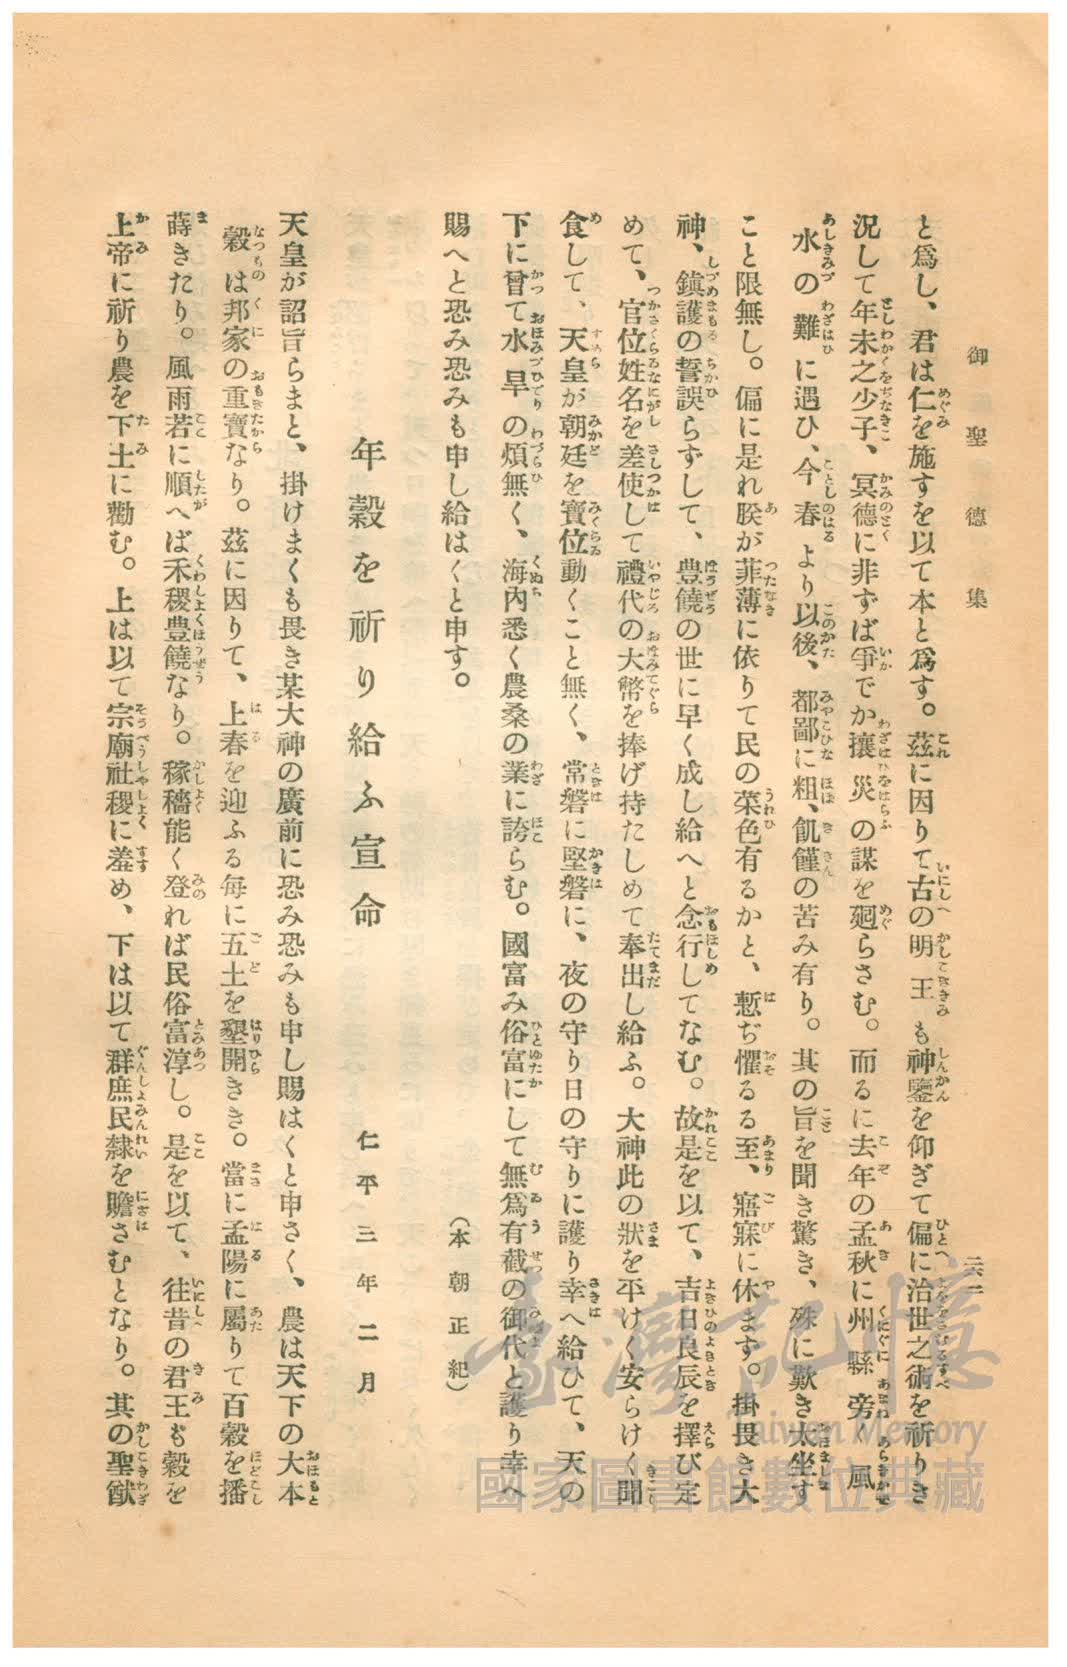 御聖德集
二六二
と爲し、君は仁を施すを以て本と爲す。茲に因りて古の明王も神鑒を仰ぎて偏に治世之術を祈りき
況して年未之少子、冥德に非ずば爭でか攘災の謀を廻らさむ。而るに去年の孟秋に州縣旁く風
水の難に遇ひ、今春より以後、都鄙に粗、飢饉の苦み有り。其の旨を聞き驚き、殊に歎き大坐す
こと限無し。偏に是れ朕が菲薄に依りて民の菜色有るかと、慙ぢ懼るる至、寤寐に休ます。掛畏き大
神、鎭護の誓誤らずして、豊饒の世に早く成し給へと念行してなむ。故是を以て、吉日良辰を擇び定
めて、官位姓名を差使して禮代の大幣を捧げ持たしめて奉出し給ふ。大神此の狀を平けく安らけく聞
食して、天皇が朝廷を寶位動くこと無く、常磐に堅磐に、夜の守り日の守りに護り幸へ給ひて、天の
下に曾て水旱の煩無く、海內悉く農桑の業に誇らむ。國富み俗富にして無爲有截の御代と護り幸へ
賜へと恐み恐みも申し給はくと申す。
（本朝正紀）
年穀を祈り給ふ宣命
仁平三年二月
天皇が詔旨らまと、掛けまくも畏き某大神の廣前に恐み恐みも申し賜はくと申さく、農は天下の大本
穀は邦家の重寶なり。茲に因りて、上春を迎ふる毎に五土を墾開きき。當に孟陽に屬りて百穀を播
蒔きたり。風雨若に順へば禾稷豊饒なり。稼穡能く登れば民俗富淳し。是を以て、往昔の君王も穀を
上帝に祈り農を下土に勸む。上は以て宗廟社稷に羞め、下は以て群庶民隸を贍さむとなり。其の聖猷
臺灣記憶
Taiwan Memory
國家圖書館數位典藏